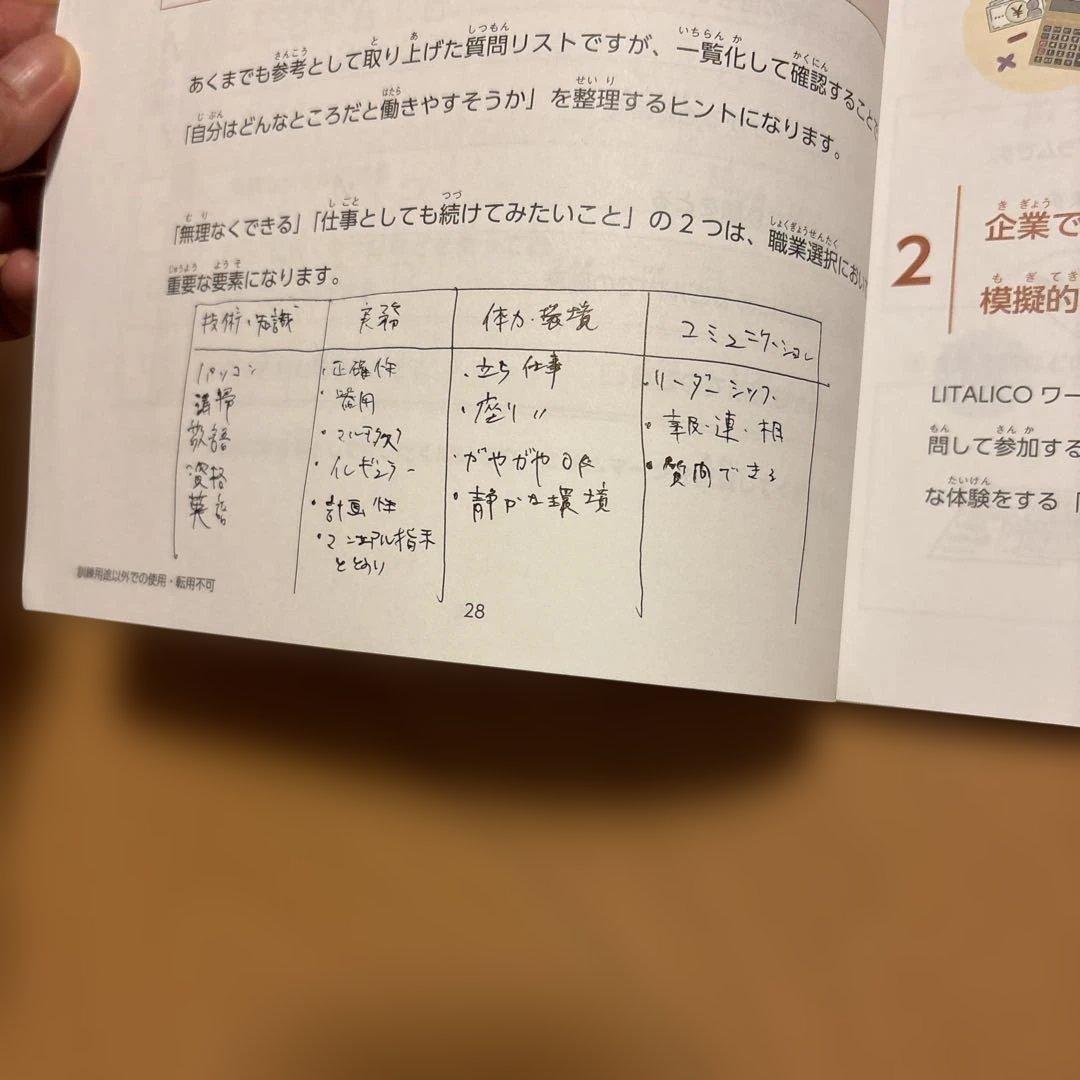 あくまでも参考として取り上げた質問リストですが、一覧化して確認することで
「自分はどんなところだと働きやすそうか」を整理するヒントになります。
「無理なくできる」「仕事としても続けてみたいこと」の2つは、職業選択におい
重要な要素になります。
技術・知識 実務 体力・環境 コミュニケーション
パソコン
清掃
敬語
資格
英語
・正確性
・器用
・マルチタスク
・イレギュラー
・計画性
・マニュアル指示
とおり
・立ち仕事
・座り〃
・がやがやOK
・静かな環境
・リーダーシップ
・報・連・相
・質問できる
訓練用途以外での使用・転用不可
28
2
企業で
模擬的
LITALICO ワー
問して参加する
な体験をする「